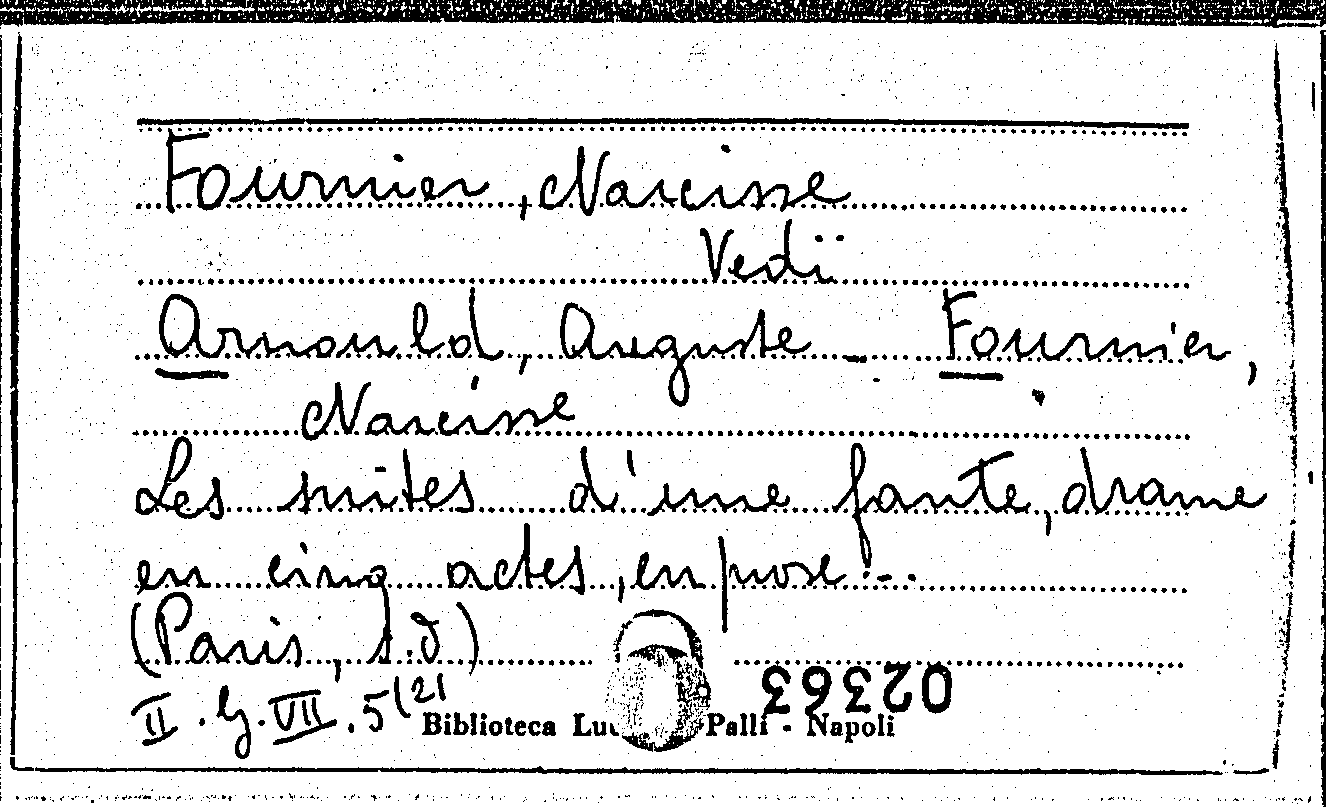 Fournier, Narcisse
Vedi
Arnould, Auguste - Fournier,
Narcisse
Les suites d'une faute, drame
en cinq actes, en prose...
(Paris, s.d)
02363
II.G.VII.5(21
Biblioteca Palli - Napoli